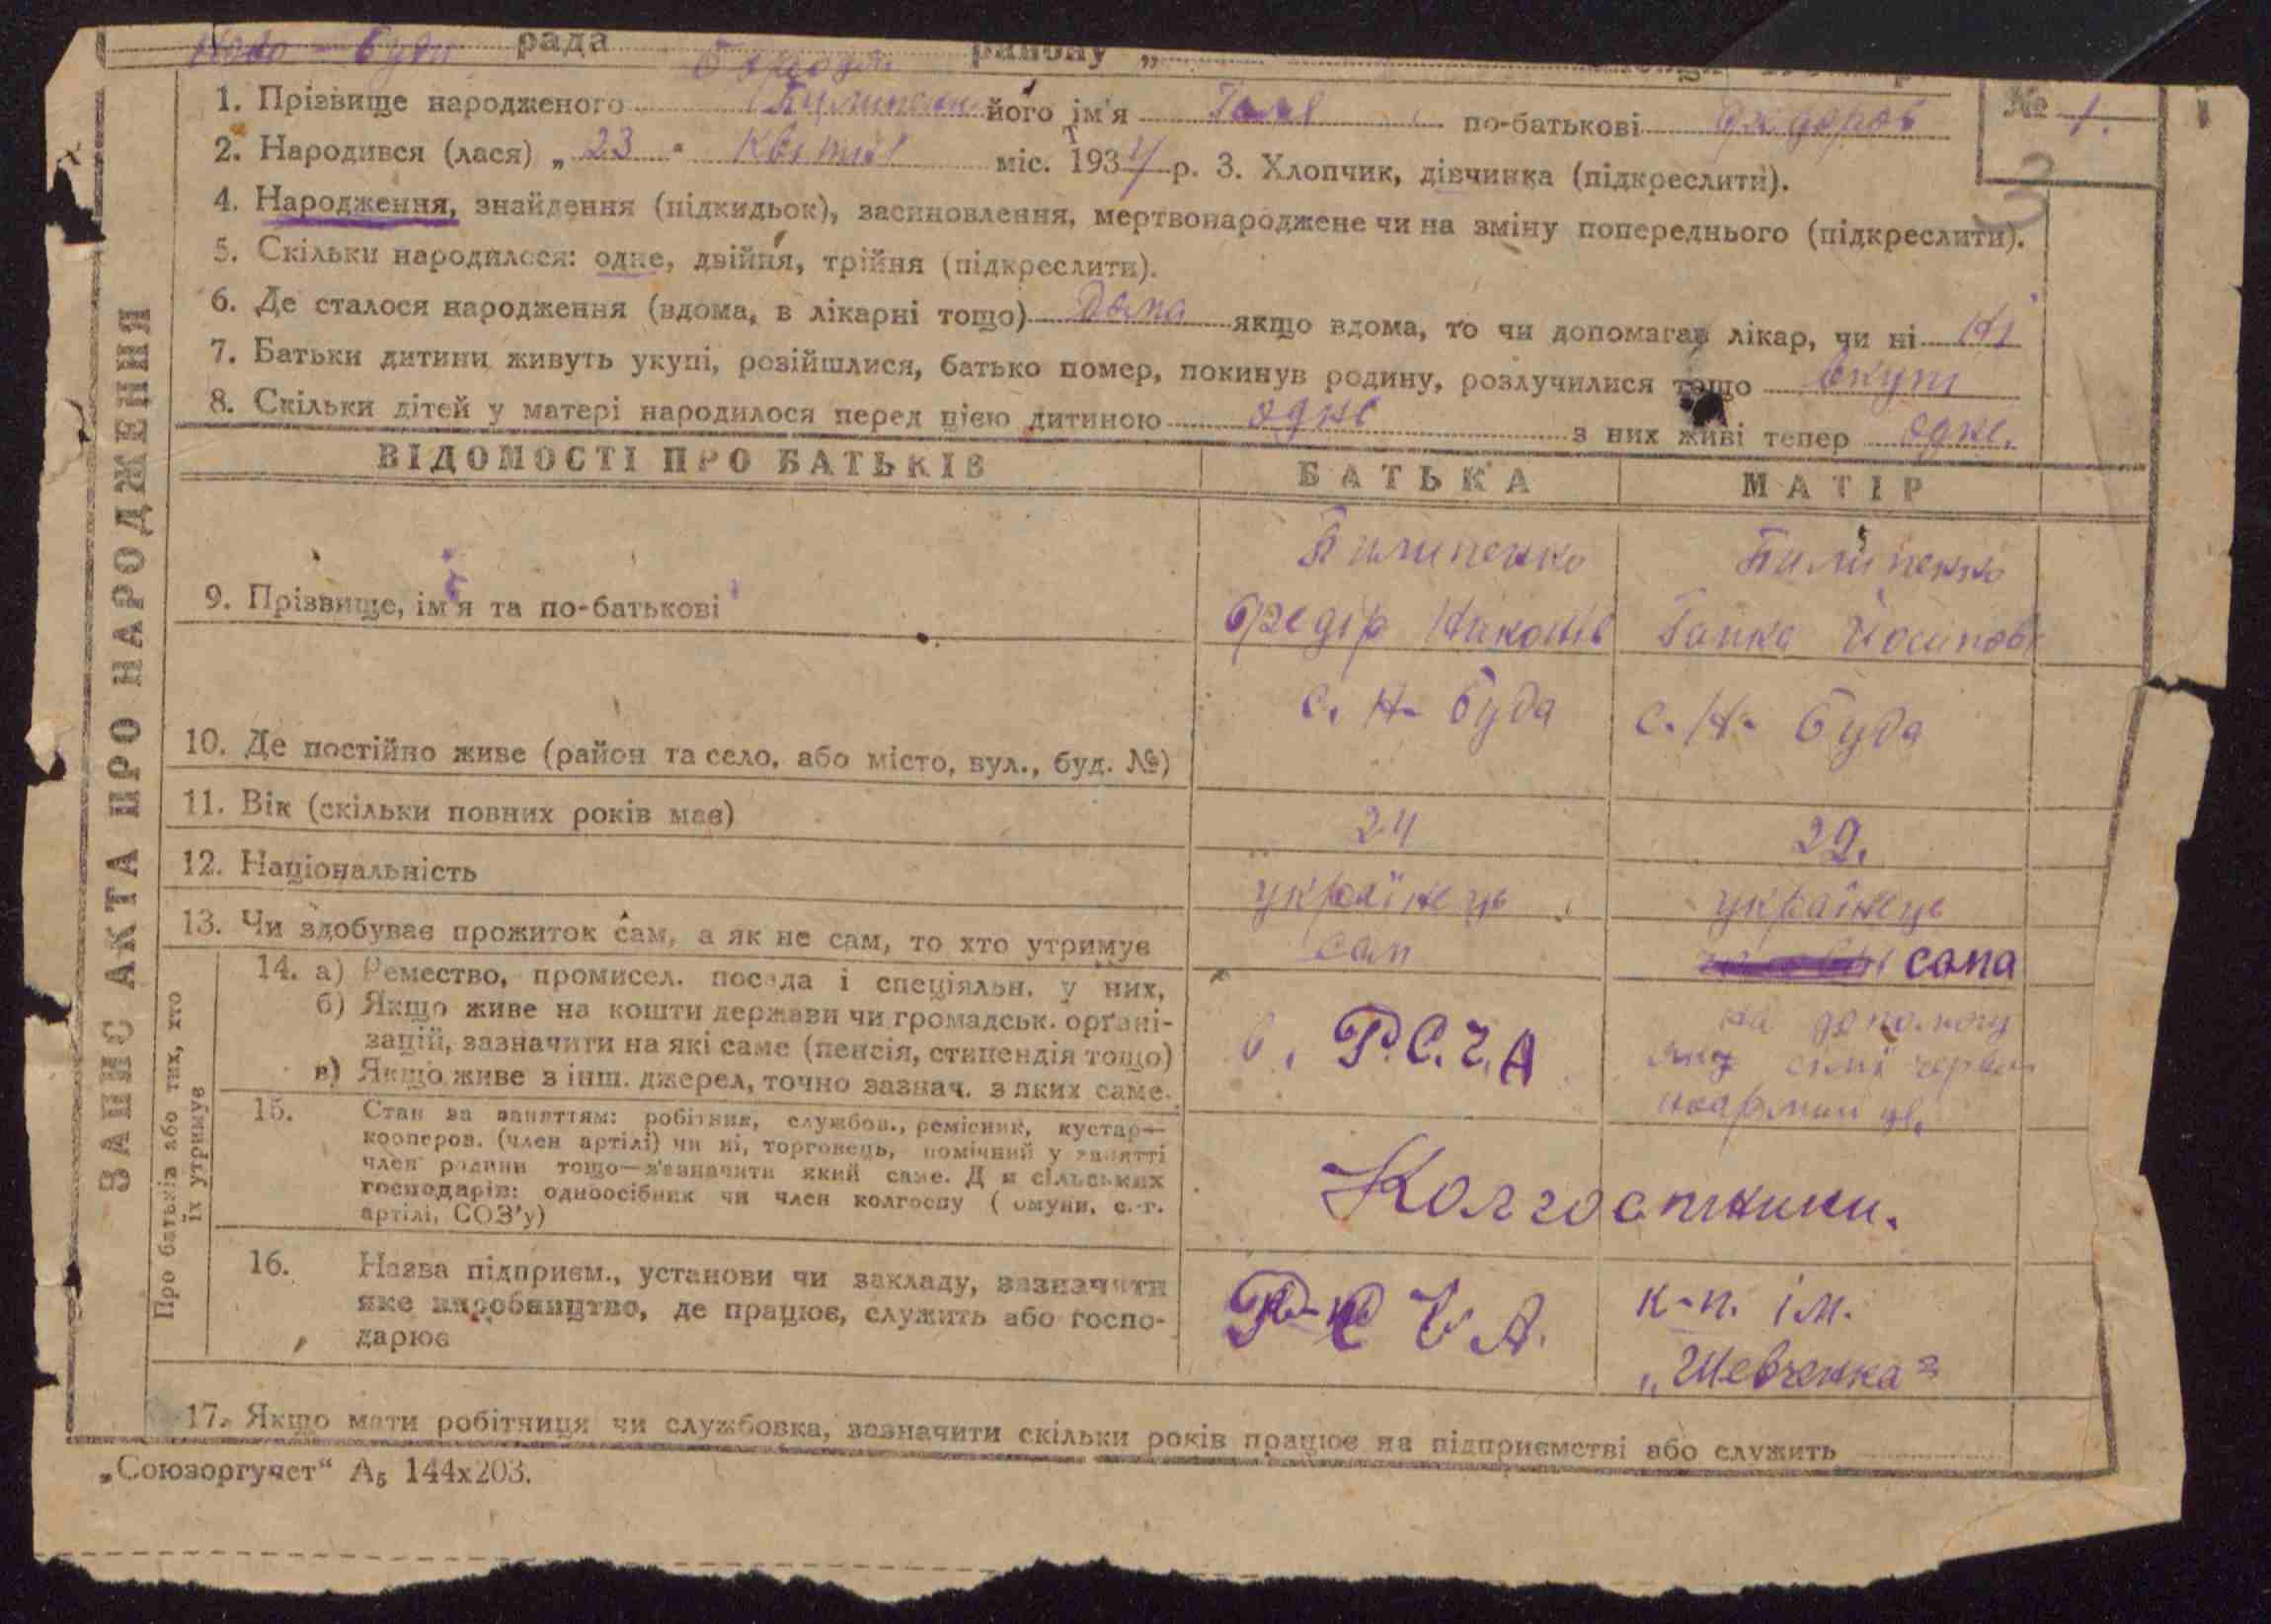 Ново-Буди рада району „
1. Прізвище народженого Пилипенко його ім'я Галя по-батькові Федоров
№ 1.
3
2. Народився (лася) „ 23 " Квітня міс. 1934 р. 3. Хлопчик, дівчинка (підкреслити).
4. Народження, знайдення (підкидьок), засиновлення, мертвонароджене чи на зміну попереднього (підкреслити).
5. Скільки народилося: одне, двійня, трійня (підкреслити).
6. Де сталося народження (вдома, в лікарні тощо) Дома якщо вдома, то чи допомагав лікар, чи ні Ні
7. Батьки дитини живуть укупі, розійшлися, батько помер, покинув родину, розлучилися тощо вкупі
8. Скільки дітей у матері народилося перед цією дитиною одне з них живі тепер одне.
ЗАПИС АКТА ПРО НАРОДЖЕННЯ
ВІДОМОСТІ ПРО БАТЬКІВ БАТЬКА МАТІР
Пилипенко Пилипенко
9. Прізвище, ім'я та по-батькові Федір Никонів Ганка Йосипов
с. Н-Буда с. Н-Буда
10. Де постійно живе (район та село, або місто, вул., буд. №)
11. Вік (скільки повних років має) 24 29.
12. Національність українець українець
13. Чи здобуває прожиток сам, а як не сам, то хто утримує сам сама
Про батьків або тих, хто
їх утримує
14. а) Ремество, промисел. посада і спеціяльн. у них,
б) Якщо живе на кошти держави чи громадськ. орґані-
зацій, зазначити на які саме (пенсія, стипендія тощо)
в) Якщо живе з інш. джерел, точно зазнач. з яких саме.
в. Р.С.Ч.А
на допомогу
сімї червон
ноармийця.
15. Стан за заняттям: робітник, службов., ремісник, кустар—
кооперов. (член артілі) чи ні, торговець, помічний у занятті
член родини тощо—зазначити який саме. Для сільських
господарів: одноосібник чи член колгоспу (комуни, с.-г.
артілі, СОЗ'у)
Колгоспники.
16. Назва підприєм., установи чи закладу, зазначити
яке виробництво, де працює, служить або госпо-
дарює
Р С Ч А.
к-п. ім.
„Шевченка"
17. Якщо мати робітниця чи службовка, зазначити скільки років працює на підприємстві або служить
„Союзоргучет" А₅ 144х203.